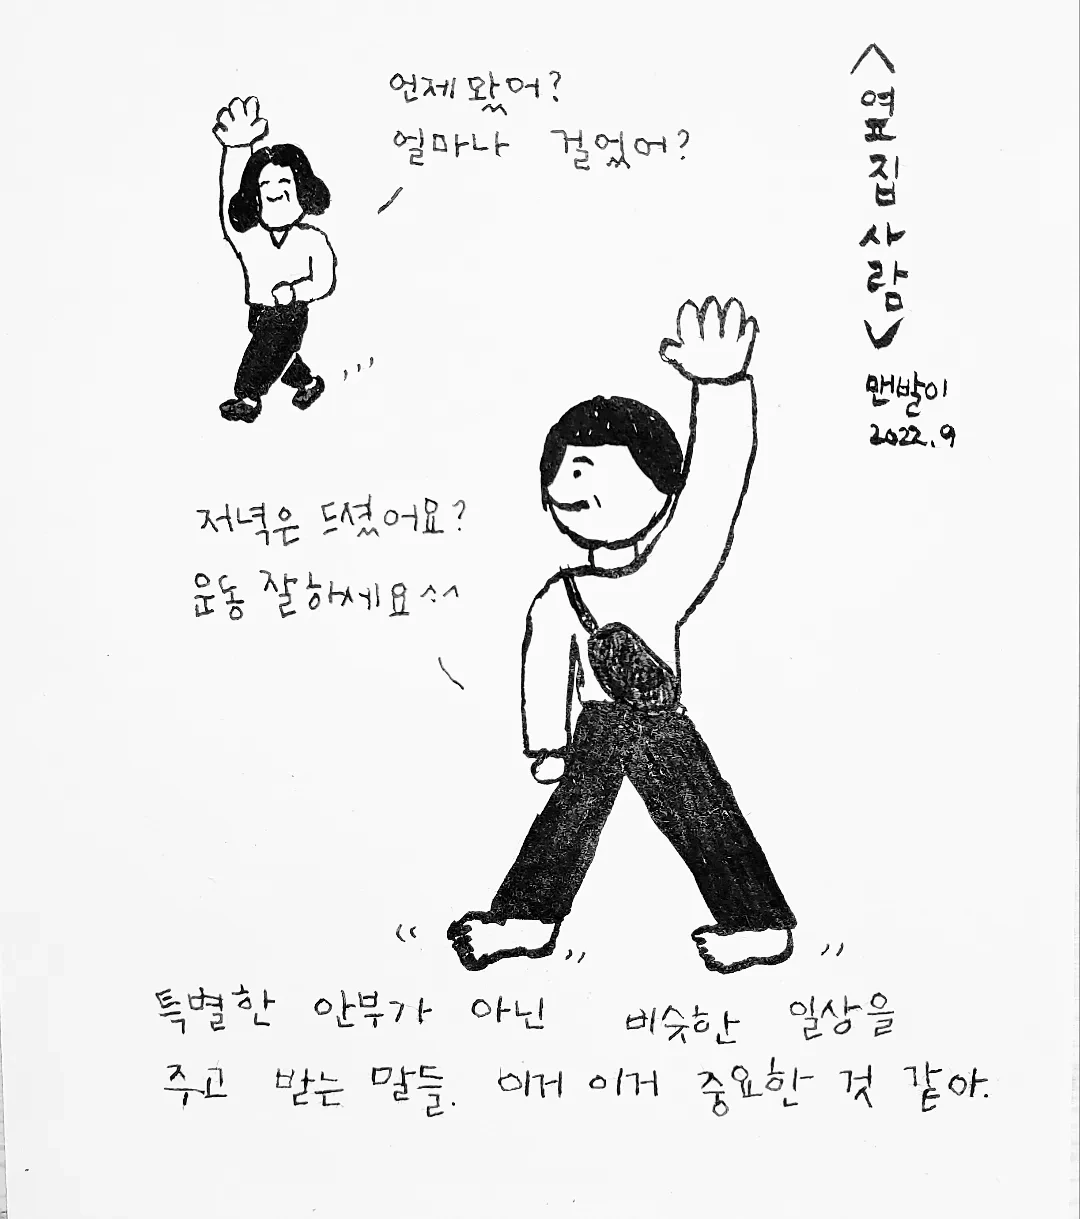 언제 왔어?
얼마나 걸었어?
<옆집사람>
맨발이
2022.9
저녁은 드셨어요?
운동 잘하세요^^
특별한 안부가 아닌 비슷한 일상을
주고 받는 말들. 이거 이거 중요한 것 같아.